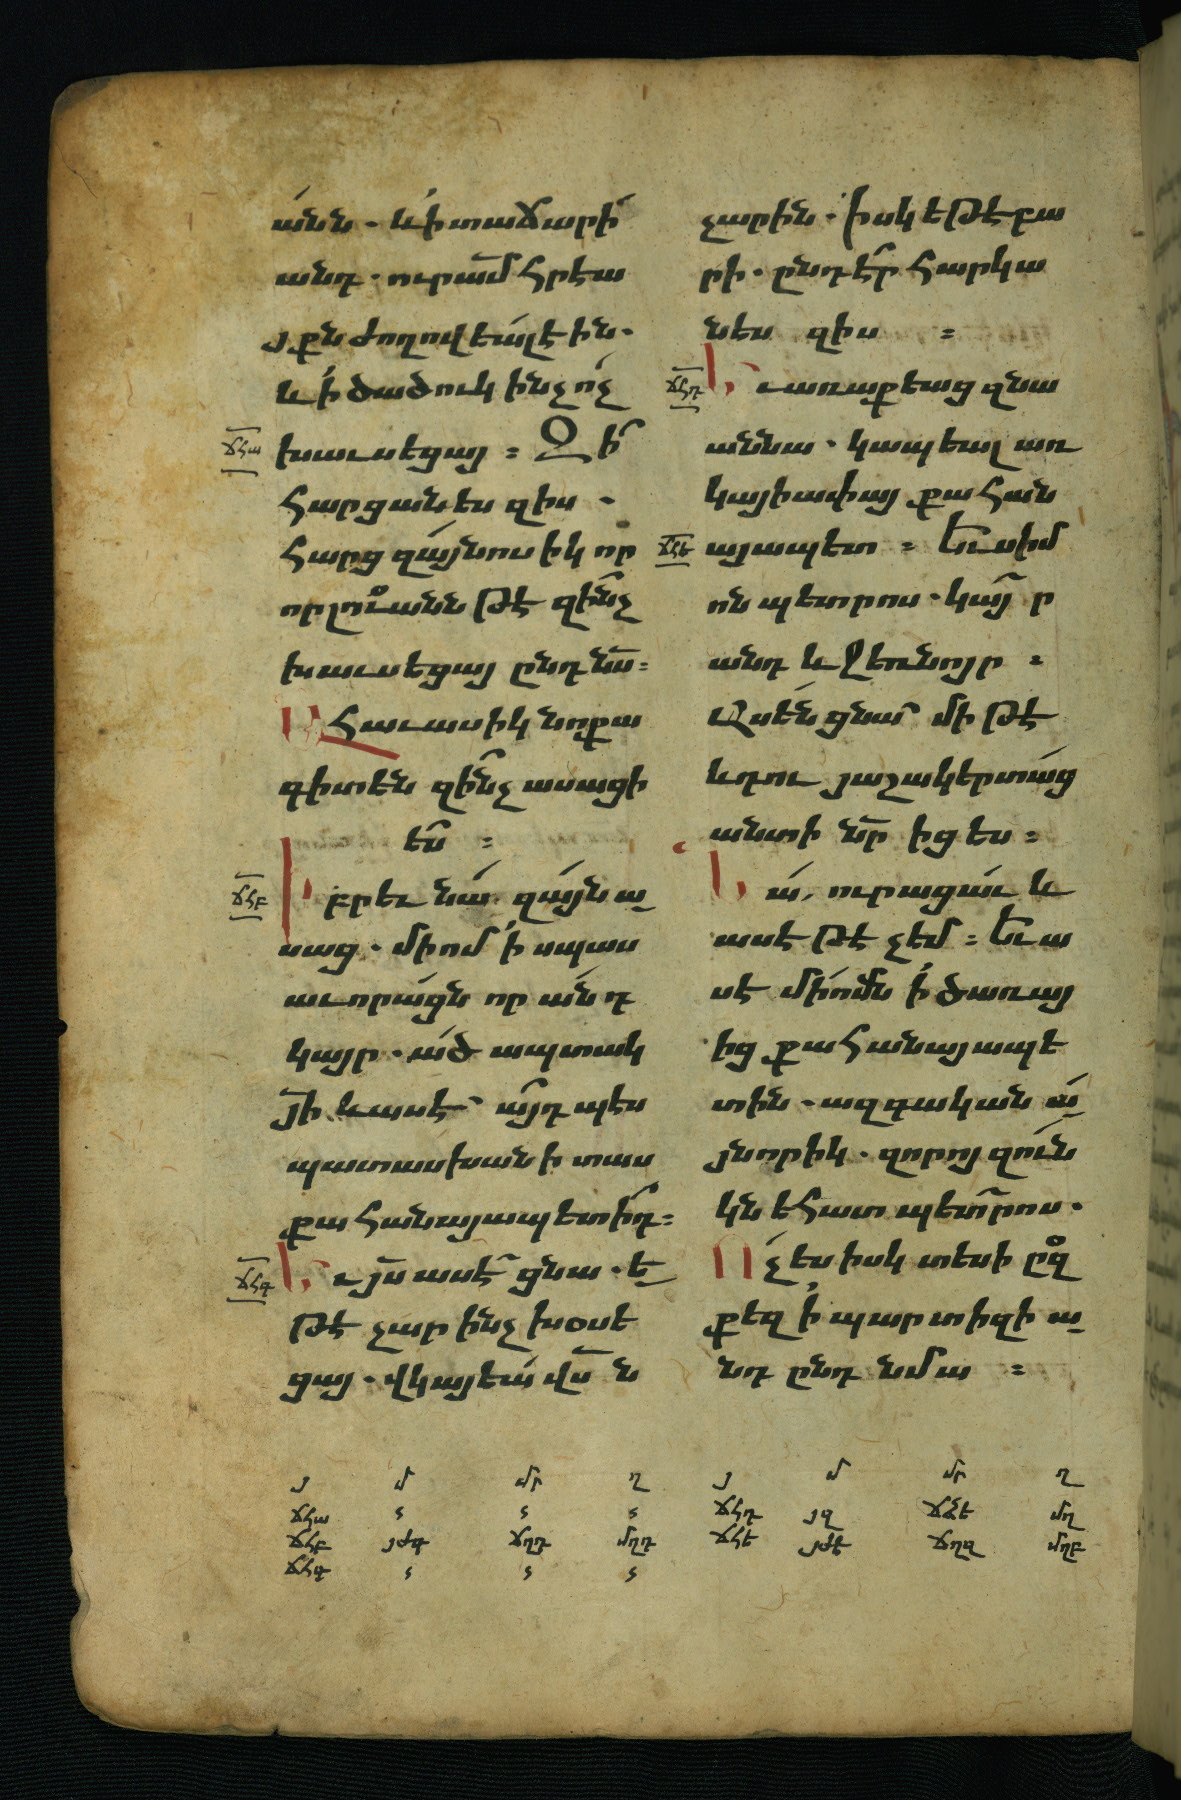 անն . և ի տաճարի
անդ . ուր ամ հրէա
յքն ժողովեալ էին .
և ի ծածուկ ինչ ոչ
ՃՀԱ խաւսեցայ : Զի
հարցանես զիս .
հարց զայնոսիկ որ
որ լուանն թէ զինչ
խաւսեցայ ընդ նս :
Ահաւասիկ նոքա
գիտեն զինչ ասացի
ես :
ՃՀԲ Իբրեւ նա զայն ա
սաց . մի ոմ ի սպաս
աւորացն որ անդ
կայր . ած ապտակ
յի և ասէ այդպէս
պատասխանի տաս
քահանայապետիդ :
ՃՀԳ Եւ յս ասէ ցնա . ե
թէ չար ինչ խօսե
ցայ . վկայեա վս ն
չարին . իսկ եթէ բա
րի . ընդէր հարկա
նես զիս :
ՃՀԴ Եւ առաքեաց զնա
աննա . կապեալ առ
կայիափայ քահան
ՃՀԵ այապետ : Եւ սիմ
ոն պետրոս . կայ ր
անդ և ջեռնոյր :
Ասեն ցնա մի թէ
և դու յաշակերտաց
անտի նր իցես :
Նա ուրացաւ և
ասէ թէ չեմ : Եւ ա
սէ մի ոմն ի ծառայ
ից քահանայապե
տին . ազգական ա
յնորիկ . զորոյ զուն
կն եհատ պետրոս .
Ոչ ես իսկ տեսի ըզ
քեզ ի պարտիզի ա
նդ ընդ նմա :
յ մ մր ղ յ մ մր ղ
ՃՀԱ Տ Տ Տ ՃՀԴ ՅԶ ՃՃԵ ՄՂ
ՃՀԲ ՅԺԳ ՃՂԴ ՄՂԴ ՃՀԵ ՅԺԷ ՃՂԶ ՄՂԲ
ՃՀԳ Տ Տ Տ